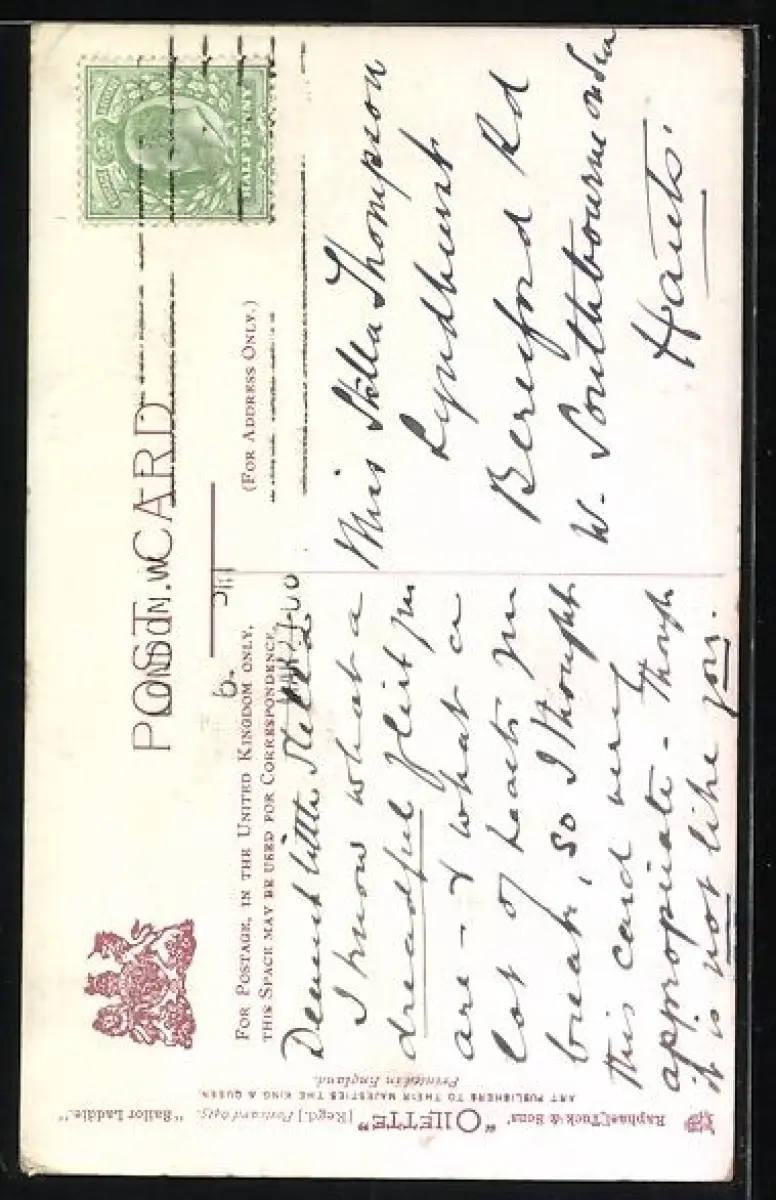 POST CARD
FOR POSTAGE, IN THE UNITED KINGDOM ONLY,
THIS SPACE MAY BE USED FOR CORRESPONDENCE.
(FOR ADDRESS ONLY.)
LONDON. W
HALF PENNY
Dearest little Stella
I know what a
dreadful flirt you
are - & what a
lot of hearts you
break, so I thought
this card very
appropriate - Though
it is not like you.
Miss Stella Thompson
Lyndhurst
Beresford Rd
W. Southbourne on Sea
Hants.
Raphael Tuck & Sons' "OILETTE" [Regd.] Postcard 9415. "Sailor Laddie."
ART PUBLISHERS TO THEIR MAJESTIES THE KING & QUEEN.
Printed in England.